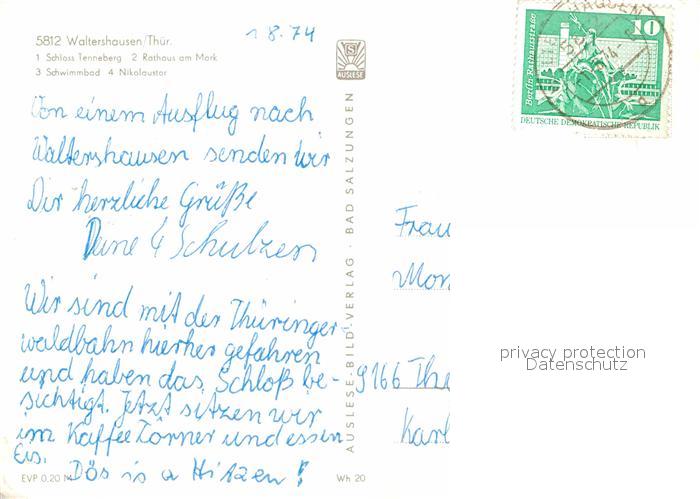 1.8.74
5812 Waltershausen/Thür.
1 Schloss Tenneberg 2 Rathaus am Mark
3 Schwimmbad 4 Nikolaustor
AUSLESE
Von einem Ausflug nach
Waltershausen senden wir
Dir herzliche Grüße
Deine 4 Schulzen
Wir sind mit der Thüringer-
waldbahn hierher gefahren
und haben das Schloß be-
sichtigt. Jetzt sitzen wir
im Kaffee Törner und essen
Eis.
Dös is a Hitzen!
EVP 0,20 M
Wh 20
AUSLESE-BILD-VERLAG · BAD SALZUNGEN
10
Berlin, Rathausstraße
DEUTSCHE DEMOKRATISCHE REPUBLIK
Frau
Mon
9166 The
Karl
privacy protection
Datenschutz